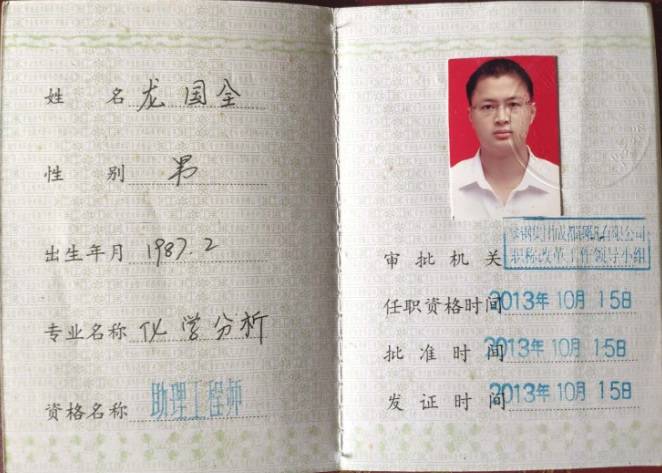 姓名 龙国全
性别 男
出生年月 1987.2
专业名称 化学分析
资格名称 助理工程师
审批机关 钢集团成都有限公司
职称改革工作领导小组
任职资格时间 2013年10月15日
批准时间 2013年10月15日
发证时间 2013年10月15日